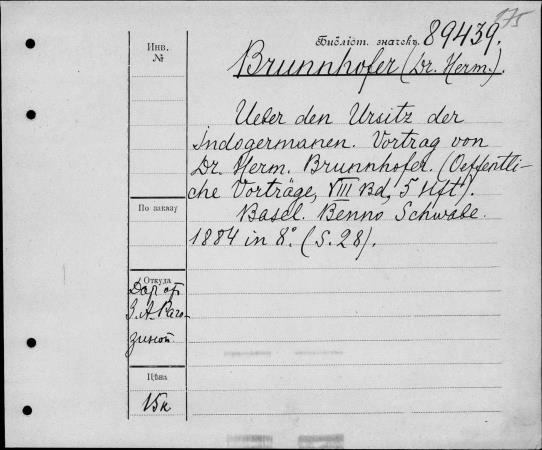 175
Библіот. значекъ 89439.
Инв.
№
Brunnhofer (Dr. Herm.).
Ueber den Ursitz der
Indogermanen. Vortrag von
Dr. Herm. Brunnhofer. (Oeffentli-
che Vorträge, VIII Bd, 5 Hft).
Basel. Benno Schwabe.
1884 in 8°. (S. 28).
По заказу
Откуда
Дар от
З. А. Раго-
зиной.
Цѣна
15к